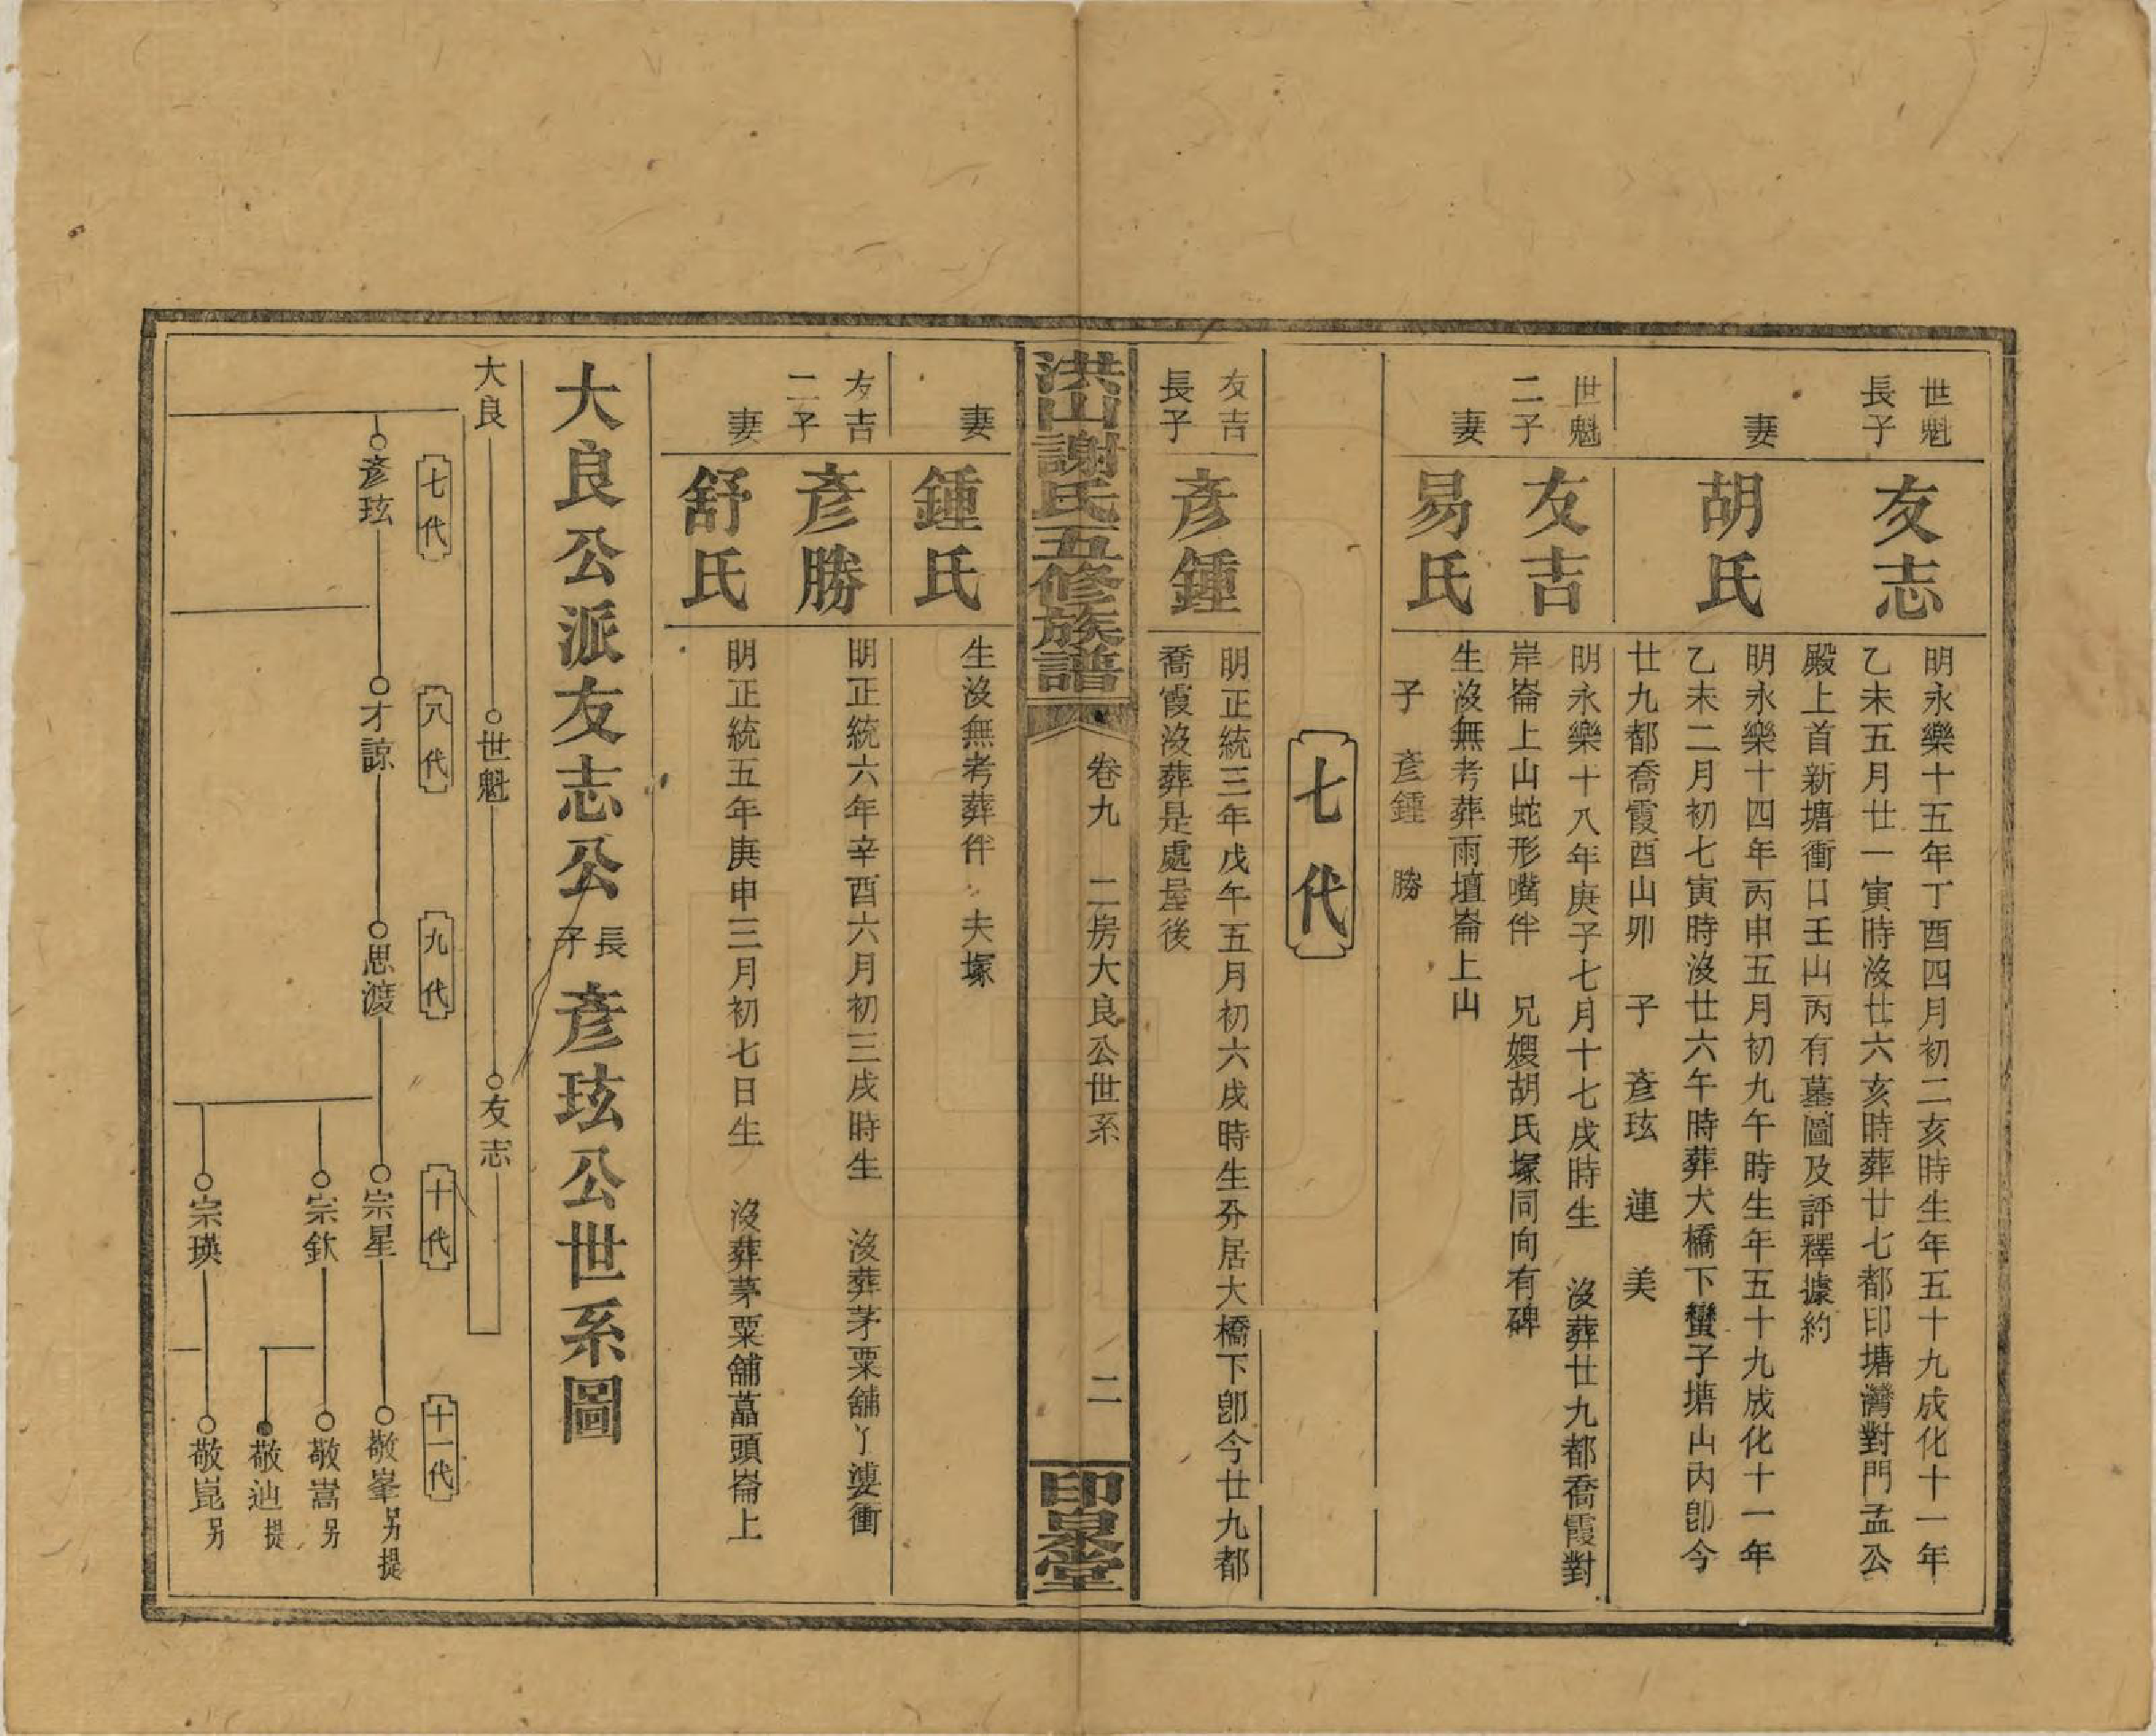 世魁
長子
友志
明永樂十五年丁酉四月初二亥時生年五十九成化十一年
乙未五月廿一寅時沒廿六亥時葬廿七都印塘灣對門孟公
殿上首新塘衝口壬山丙有墓圖及評釋據約
妻
胡氏
明永樂十四年丙申五月初九午時生年五十九成化十一年
乙未二月初七寅時沒廿六午時葬大橋下蠻子塘山內卽今
廿九都喬霞酉山卯 子 彥玹 連 美
世魁
二子
友吉
明永樂十八年庚子七月十七戌時生 沒葬廿九都喬霞對
岸崙上山蛇形嘴伴 兄嫂胡氏塚同向有碑
妻
易氏
生沒無考葬雨壇崙上山
子 彥鍾 勝
七代
友吉
長子
彥鍾
明正統三年戊午五月初六戌時生分居大橋下卽今廿九都
喬霞沒葬是處屋後
洪山謝氏五修族譜
卷九 二房大良公世系
二
印泉堂
妻
鍾氏
生沒無考葬伴 夫塚
友吉
二子
彥勝
明正統六年辛酉六月初三戌時生 沒葬茅粟舖丫婆衝
妻
舒氏
明正統五年庚申三月初七日生 沒葬茅粟舖藠頭崙上
大良公派友志公長子彥玹公世系圖
大良
世魁
友志
七代
八代
九代
十代
十一代
彥玹
才諒
思渡
宗星
敬峯另提
宗欽
敬嵩另
敬辿提
宗瑛
敬崑另